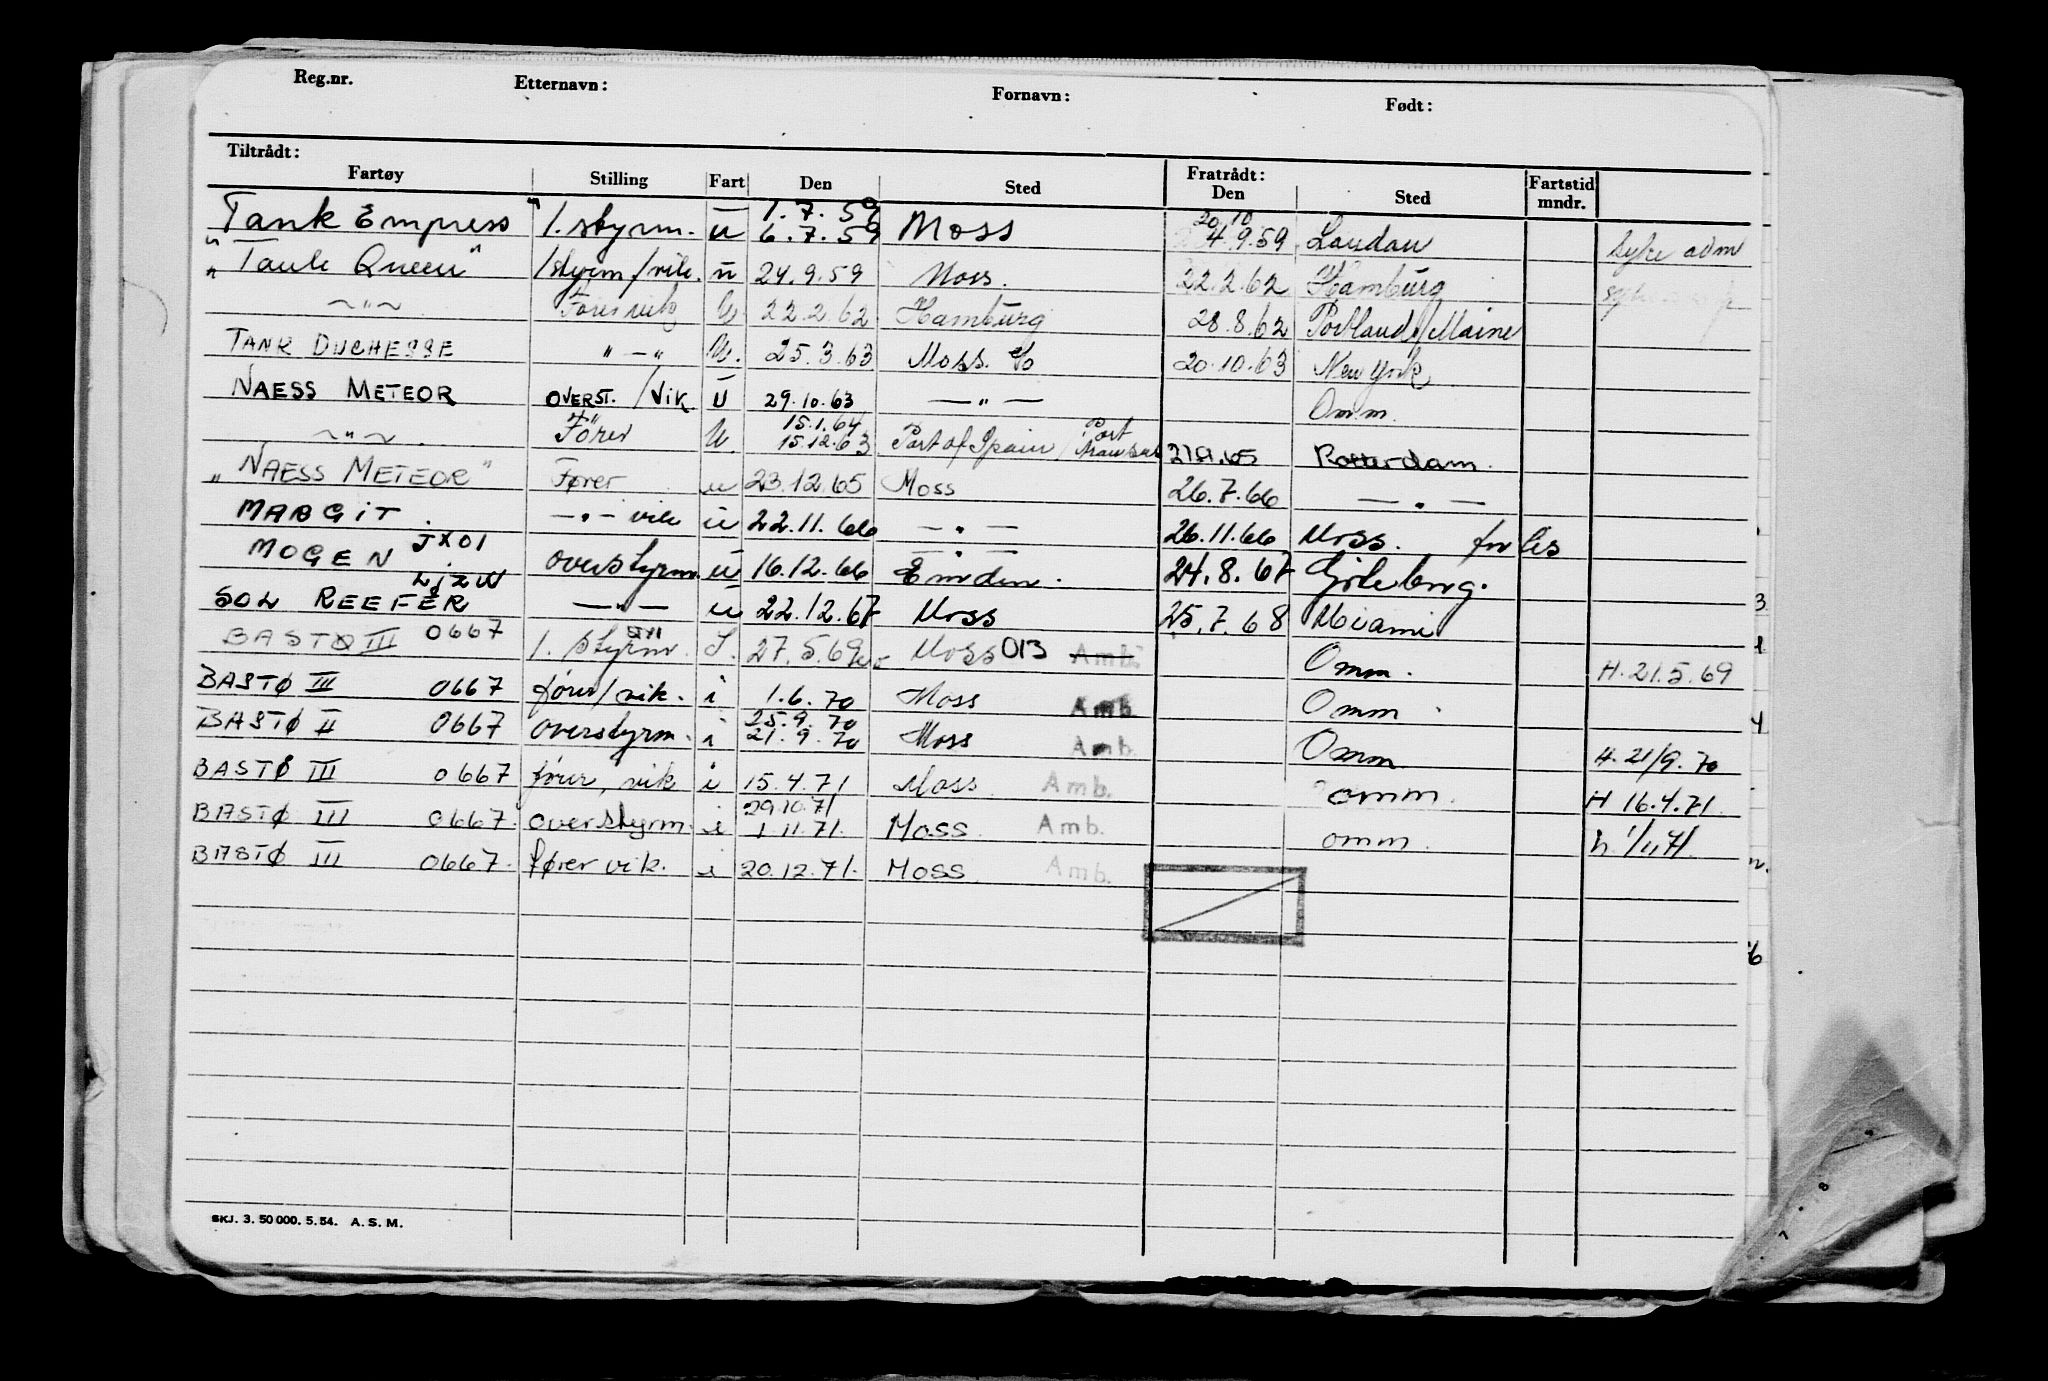 Reg.nr. Etternavn: Fornavn: Født:
Tiltrådt: Fratrådt:
Fartøy Stilling Fart Den Sted Den Sted Fartstid mndr.
1.7.59 20.10
"Tank Empress" 1. styrm. u 6.7.59 Moss 4.9.59 Landau syke adm
"Tank Queen" 1styrm/vik. u 24.9.59 Moss. 22.2.62 Hamburg
~"~ Fører vik u 22.2.62 Hamburg 28.8.62 Portland/Maine
TANK DUCHESSE "—" U. 25.3.63 Moss. 20.10.63 New York
NAESS METEOR OVERST./VIK U 29.10.63 —"— Omm.
15.1.64 Port
~"~ Fører U. 15.12.63 Port of Spain / 21.9.65 Rotterdam.
"NAESS METEOR" Fører u 23.12.65 Moss 26.7.66 —"—
MARGIT. —"— vik u 22.11.66 —"— 26.11.66 Moss.
JXOI
MOGEN overstyrm. u 16.12.66 Emden. 24.8.67 Gøteborg.
LJZW
SOL REEFER —"— u 22.12.67 Moss 25.7.68 Miami
BASTØ III 0667 1. styrm. I. 27.5.69 Moss 013 Amb. Omm. H. 21.5.69
BASTØ III 0667 fører/vik. i 1.6.70 Moss Amb Omm
25.9.70
BASTØ II 0667 overstyrm. i 21.9.70 Moss Amb. Omm H. 21/9.70
BASTØ III 0667 fører, vik i 15.4.71 Moss Amb. omm. H 16.4.71.
29.10.71
BASTØ III 0667. overstyrm. i 1.11.71. Moss. Amb. omm. h. 1/11 71.
BASTØ III 0667. fører vik. i 20.12.71. MOSS. Amb.
SKJ. 3. 50 000. 5. 54. A. S. M.